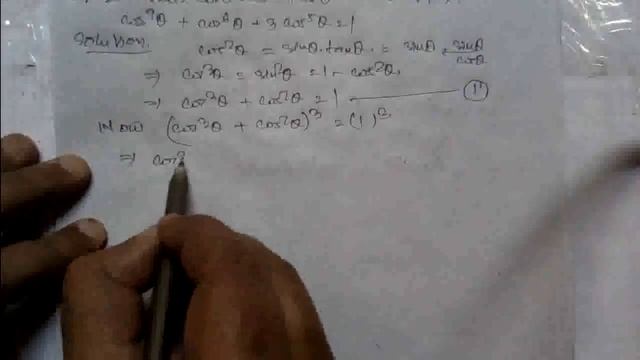 cos⁹θ + cos⁶θ + 3 cos⁵θ = 1
Solution.
cos²θ = sinθ. tanθ. = sinθ. sinθ/cosθ
⇒ cos³θ = sin²θ = 1 - cos²θ.
⇒ cos³θ + cos²θ = 1 ①
Now (cos³θ + cos²θ)³ = (1)³
⇒ cos